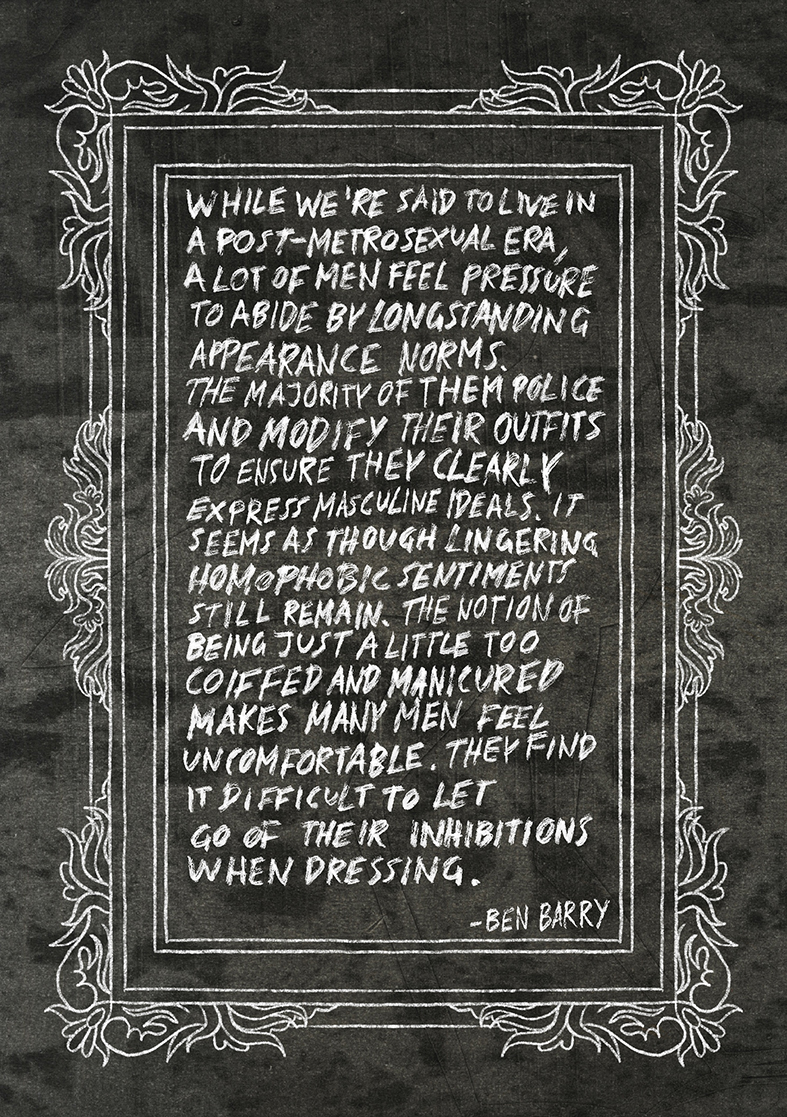 WHILE WE'RE SAID TO LIVE IN
A POST-METROSEXUAL ERA,
A LOT OF MEN FEEL PRESSURE
TO ABIDE BY LONGSTANDING
APPEARANCE NORMS.
THE MAJORITY OF THEM POLICE
AND MODIFY THEIR OUTFITS
TO ENSURE THEY CLEARLY
EXPRESS MASCULINE IDEALS. IT
SEEMS AS THOUGH LINGERING
HOMOPHOBIC SENTIMENTS
STILL REMAIN. THE NOTION OF
BEING JUST A LITTLE TOO
COIFFED AND MANICURED
MAKES MANY MEN FEEL
UNCOMFORTABLE. THEY FIND
IT DIFFICULT TO LET
GO OF THEIR INHIBITIONS
WHEN DRESSING.
-BEN BARRY